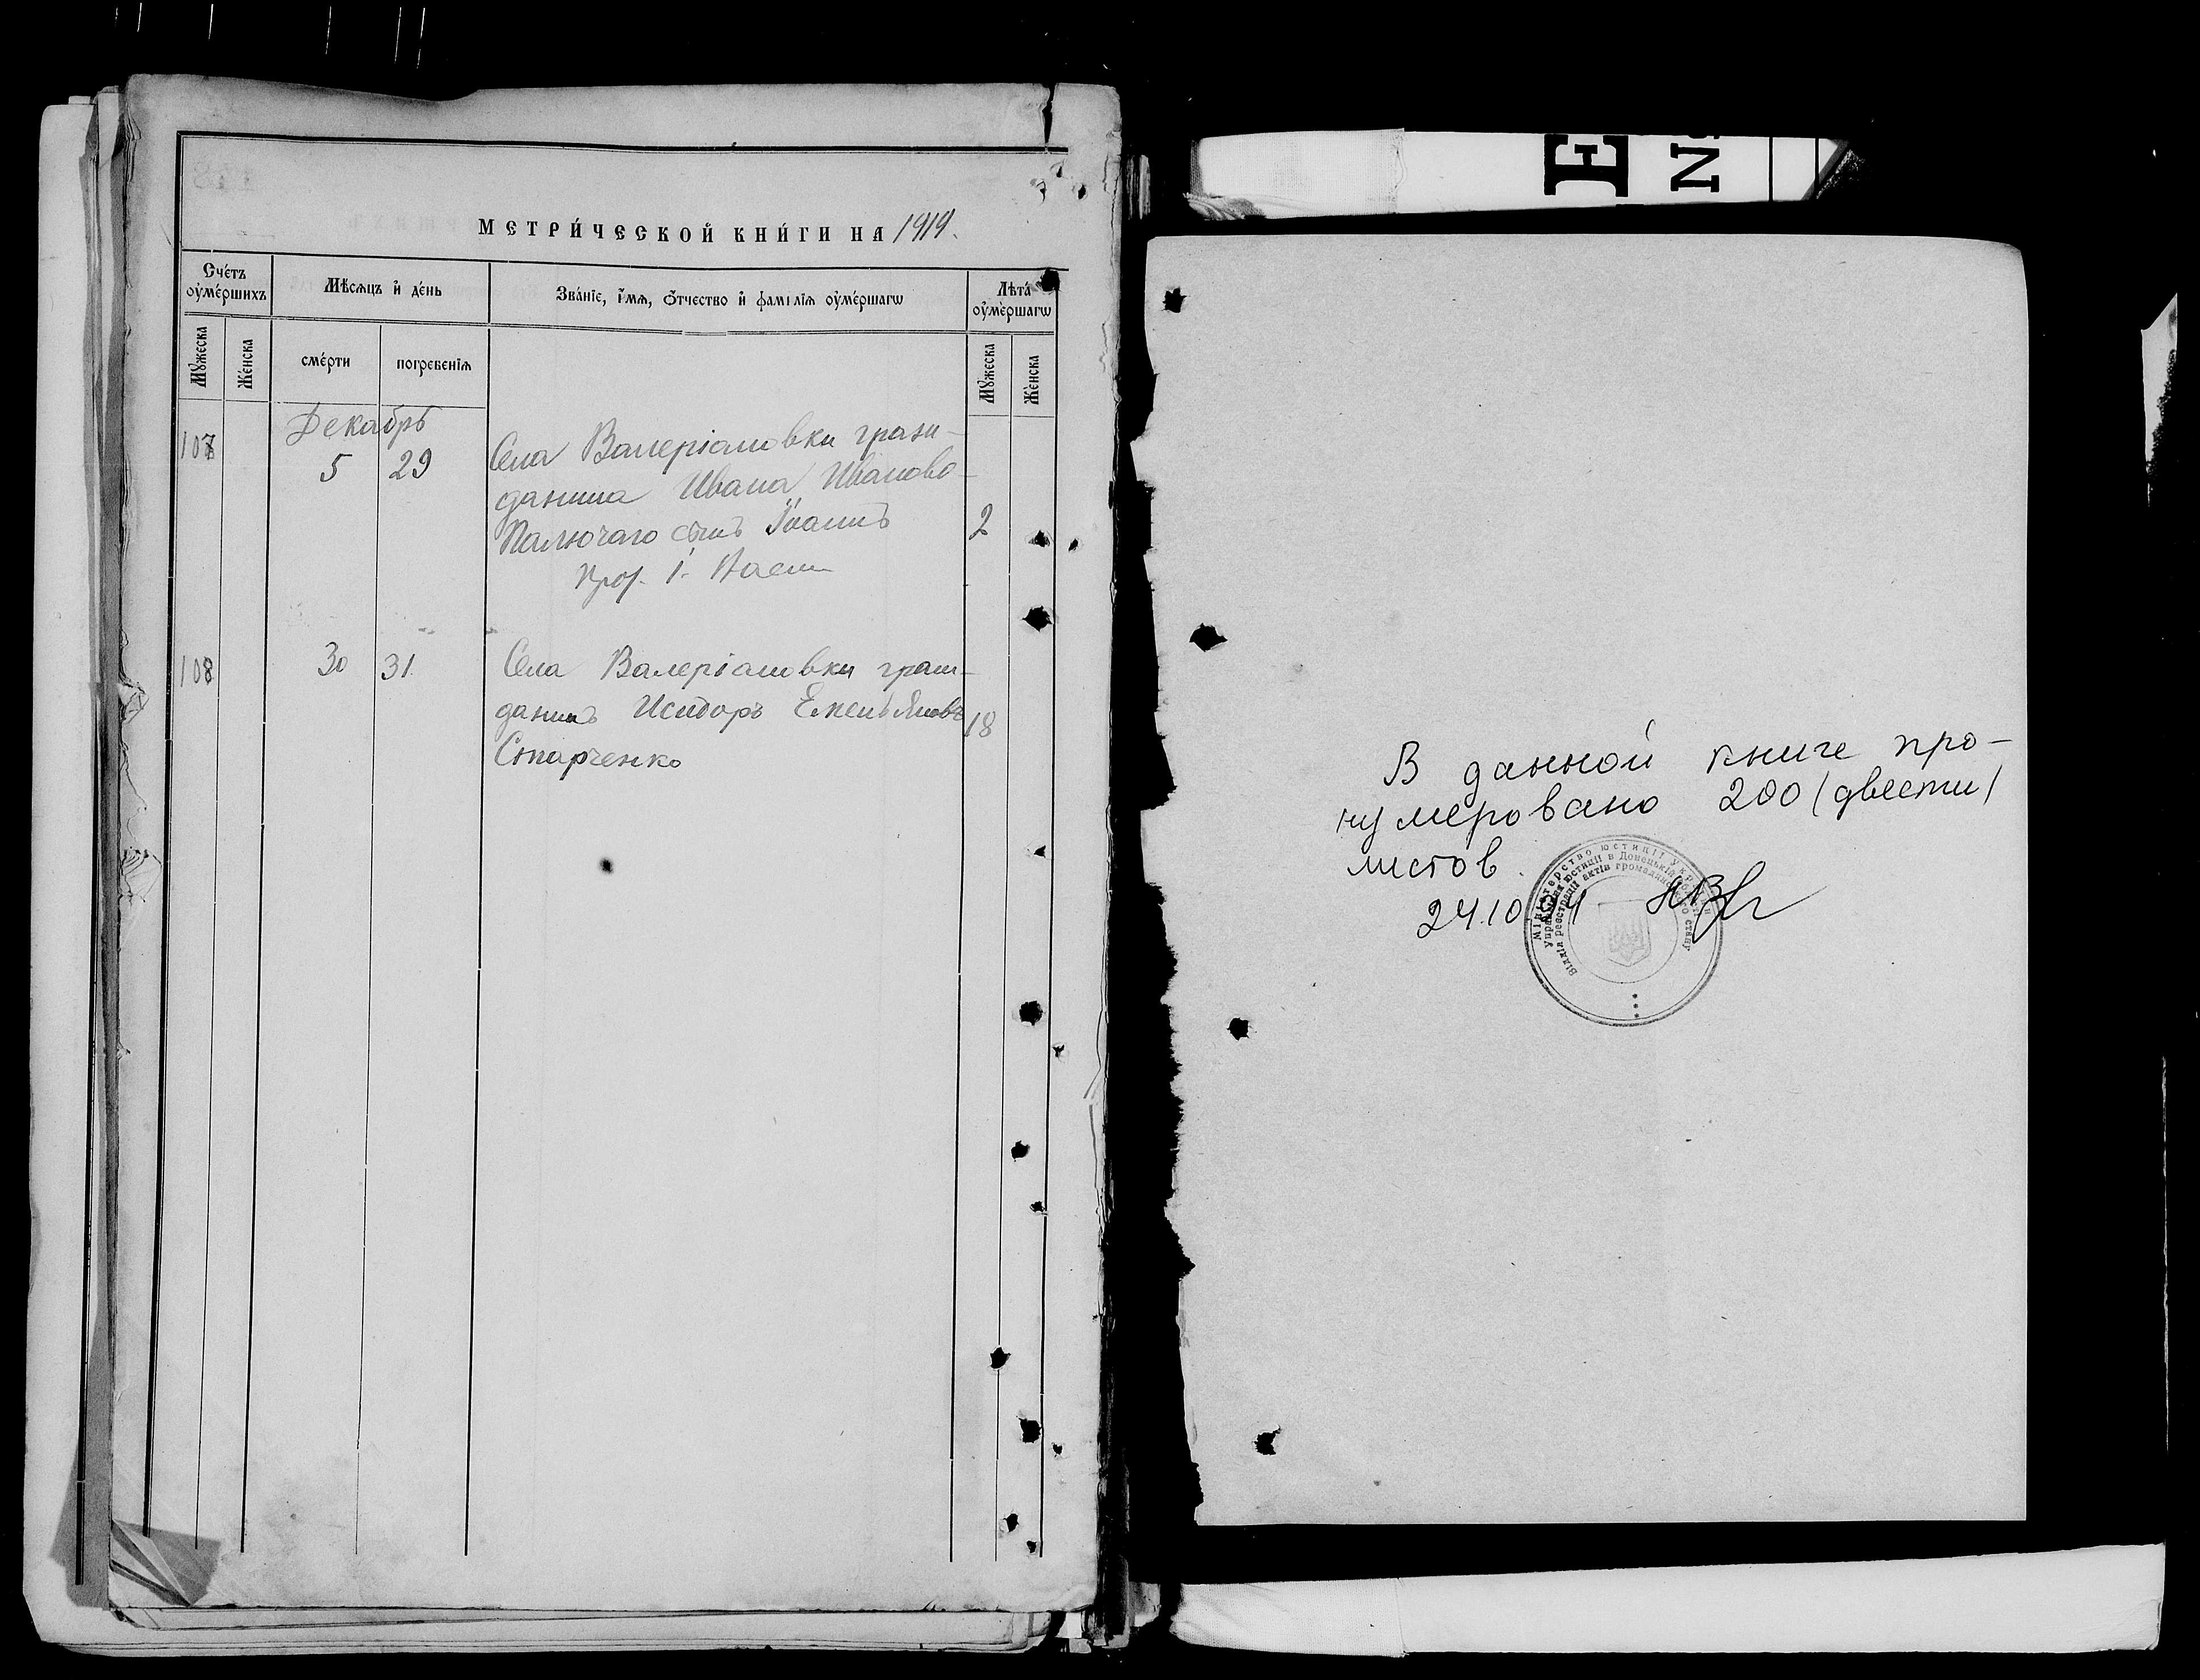 МЕТРИ́ЧЕСКОЙ КНИ́ГИ НА 1919.
Сче́тъ ѹме́ршихъ
Мѣсѧцъ и де́нь
Зва́нїе, и́мѧ, ѻ́тчество и фамилїѧ ѹме́ршагѡ
Лѣта̀ ѹме́ршагѡ
Мꙋ́жеска
Же́нска
сме́рти
погребенїѧ
Мꙋ́жеска
Же́нска
Декабрь
107
5 29
Села Валеріановки граж-
данина Ивана Иванова
Палючаго сынъ Іоаннъ
2
108
30 31.
Села Валеріановки граж-
данинъ Исидоръ Емельяновъ
Старченко
18
E
NS
В данной книге про-
нумеровано 200 (двести)
листов.
24.10
Міністерство юстиції України
Управління юстиції в Донецькій області
Відділ реєстрації актів громадянського стану